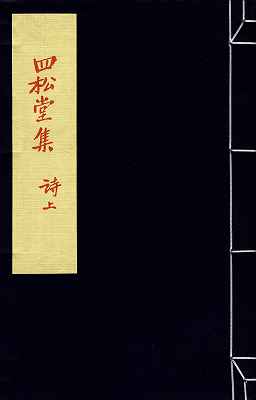 四松堂集
诗上